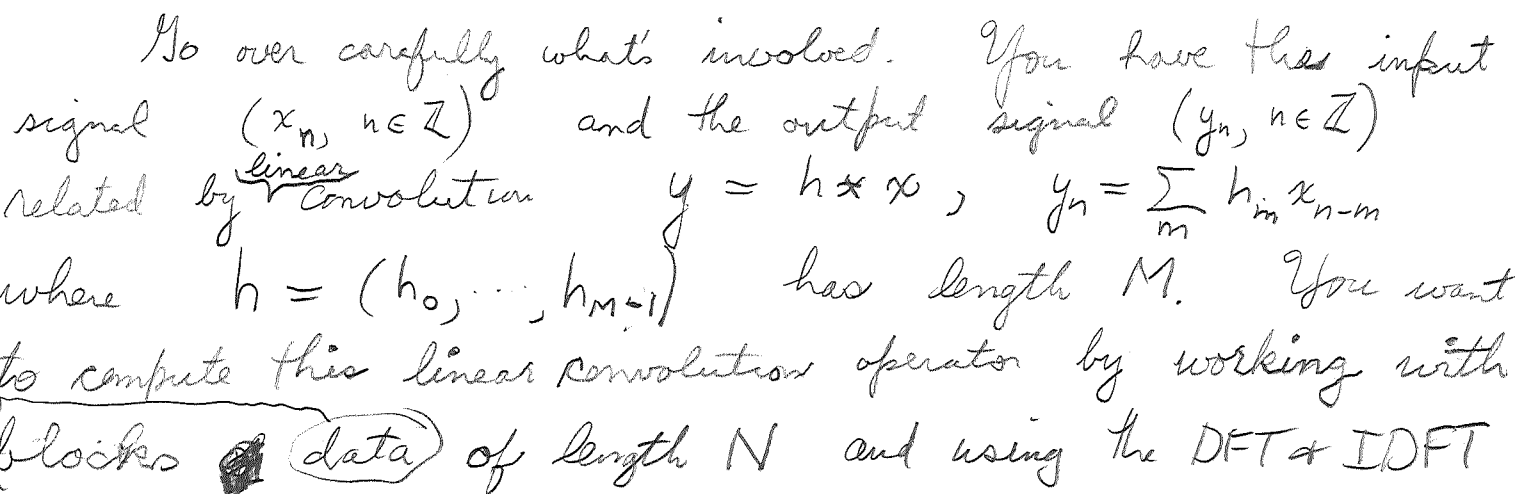 Go over carefully what's involved. You have the input
signal (xₙ, n ∈ ℤ) and the output signal (yₙ, n ∈ ℤ)
related by linear convolution y = h * x , yₙ = ∑ₘ hₘ xₙ₋ₘ
where h = (h₀, ..., h_{M-1}) has length M. You want
to compute this linear convolution operator by working with
blocks data of length N and using the DFT & IDFT